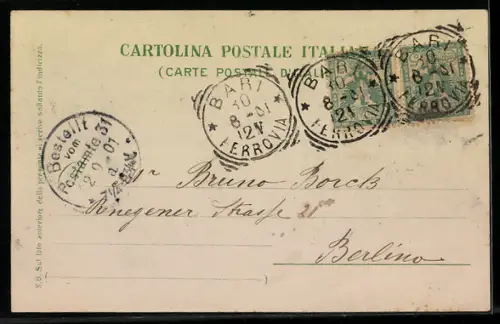 CARTOLINA POSTALE ITALIANA
(CARTE POSTALE D'ITALIE)
BARI
30
8-01
12V
FERROVIA
BARI
30
8-01
12V
FERROVIA
BARI
30
8-01
12V
FERROVIA
Bestellt
vom
Postamte 31
2.9.01
Bruno Borck
Strasse 21
Berlino
N.B. Sul lato anteriore della presente si scrive soltanto l'indirizzo.